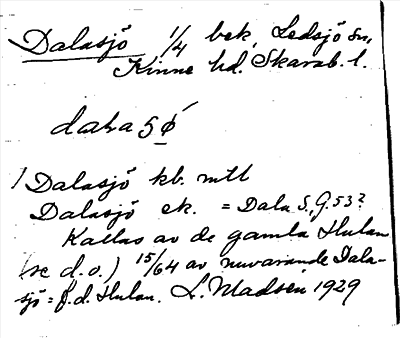 Dalasjö 1/4 bek, Ledsjö sn,
Kinne hd. Skarab. l.
1) Dalasjö kb. mtl
Dalasjö ek. = Dala S., G. 53?
Kallas av de gamla Hulan
(se d.o.) 15/64 av nuvarande Dala-
sjö = f.d. Hulan. L. Madsén 1929